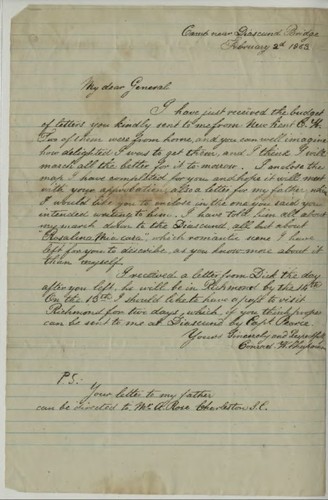 Camp near Diascund Bridge
February 2d 1863
My dear General
I have just received the budget
of letters you kindly sent to me from New Kent C. H.
Two of them were from home, and you can well imagine
how delighted I was to get them, and I think I will
march all the letter for it to morrow. I enclose the
map I have completed for you and hope it will meet
with your approbation, also a letter for my father which
I would like you to enclose in the one you said you
intended writing to him. I have told him all about
my march down to the Diascund, all but about
"Rosalina the ", which romantic scene I have
left for you to describe, as you know more about it
than myself.
I received a letter from Dick the day
after you left, he will be in Richmond by the 14th
On the 13th I should like to have a profit to visit
Richmond for two days, which, if you think proper
can be sent to me at Diascund by Capt Pearce
Yours Sincerely and Respectfully
Conrad
P.S.
Your letter to my father
can be directed to Mr A. Rose Charleston S.C.